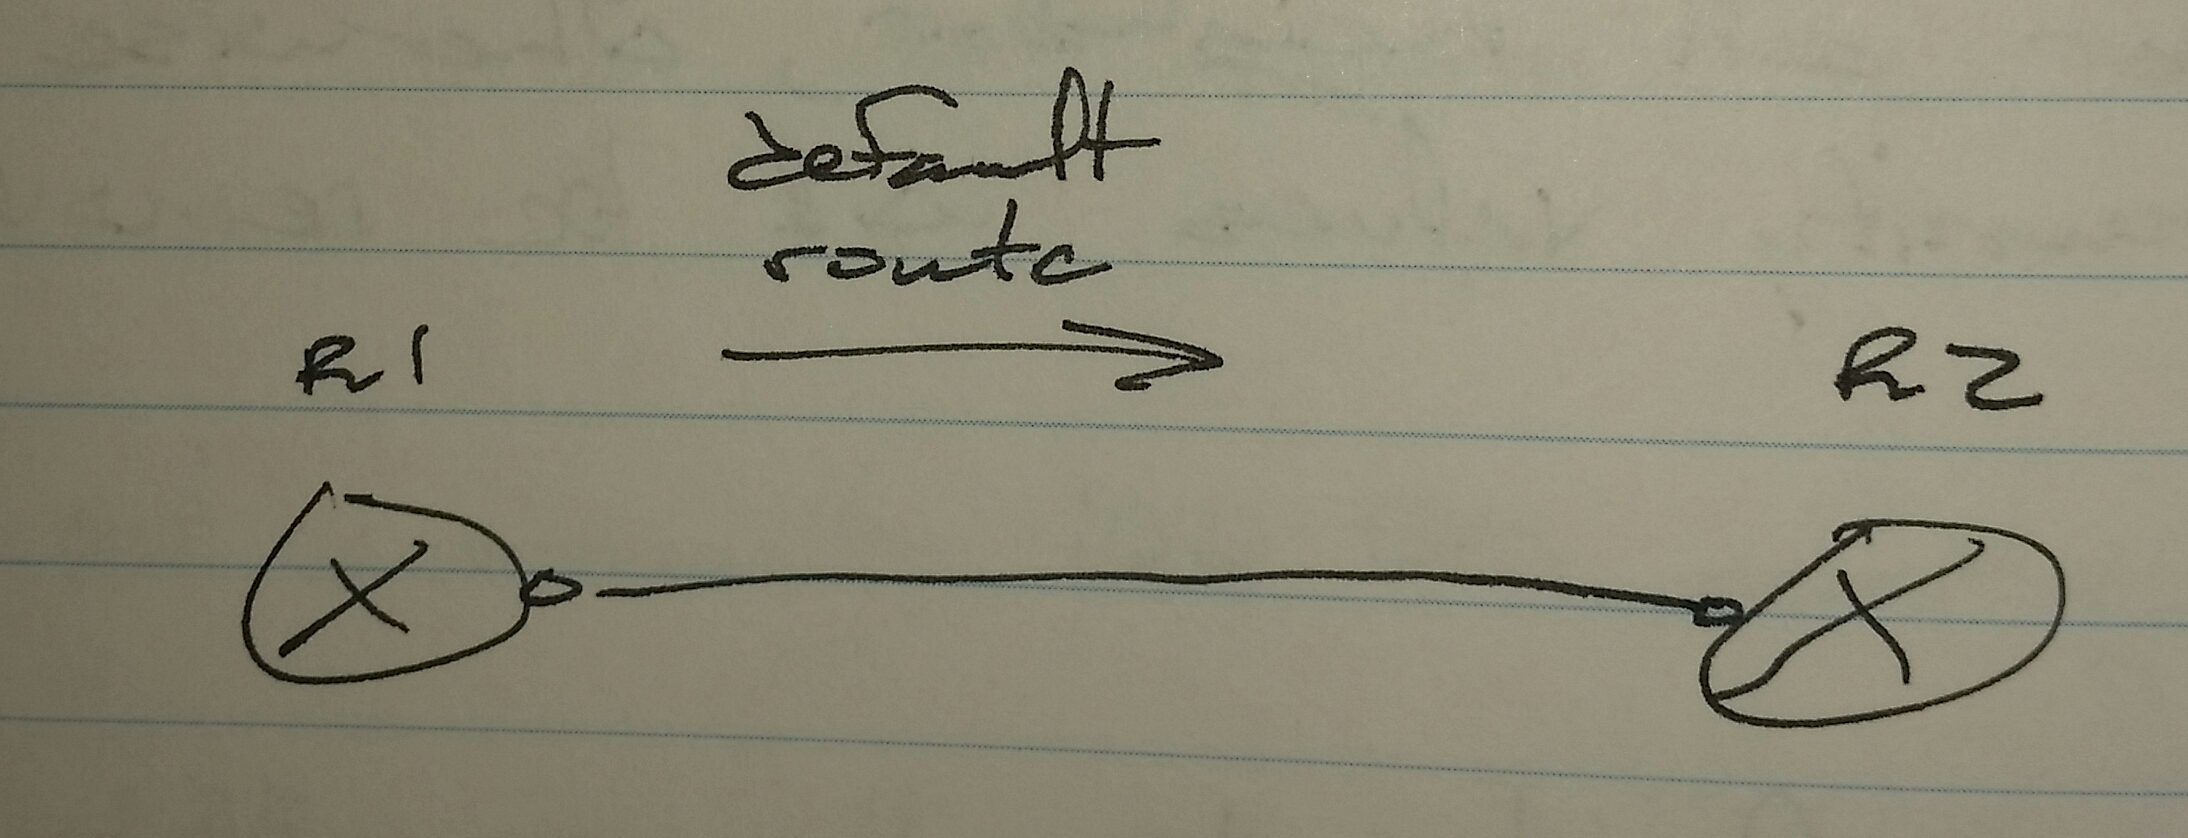 default
route
R1
R2